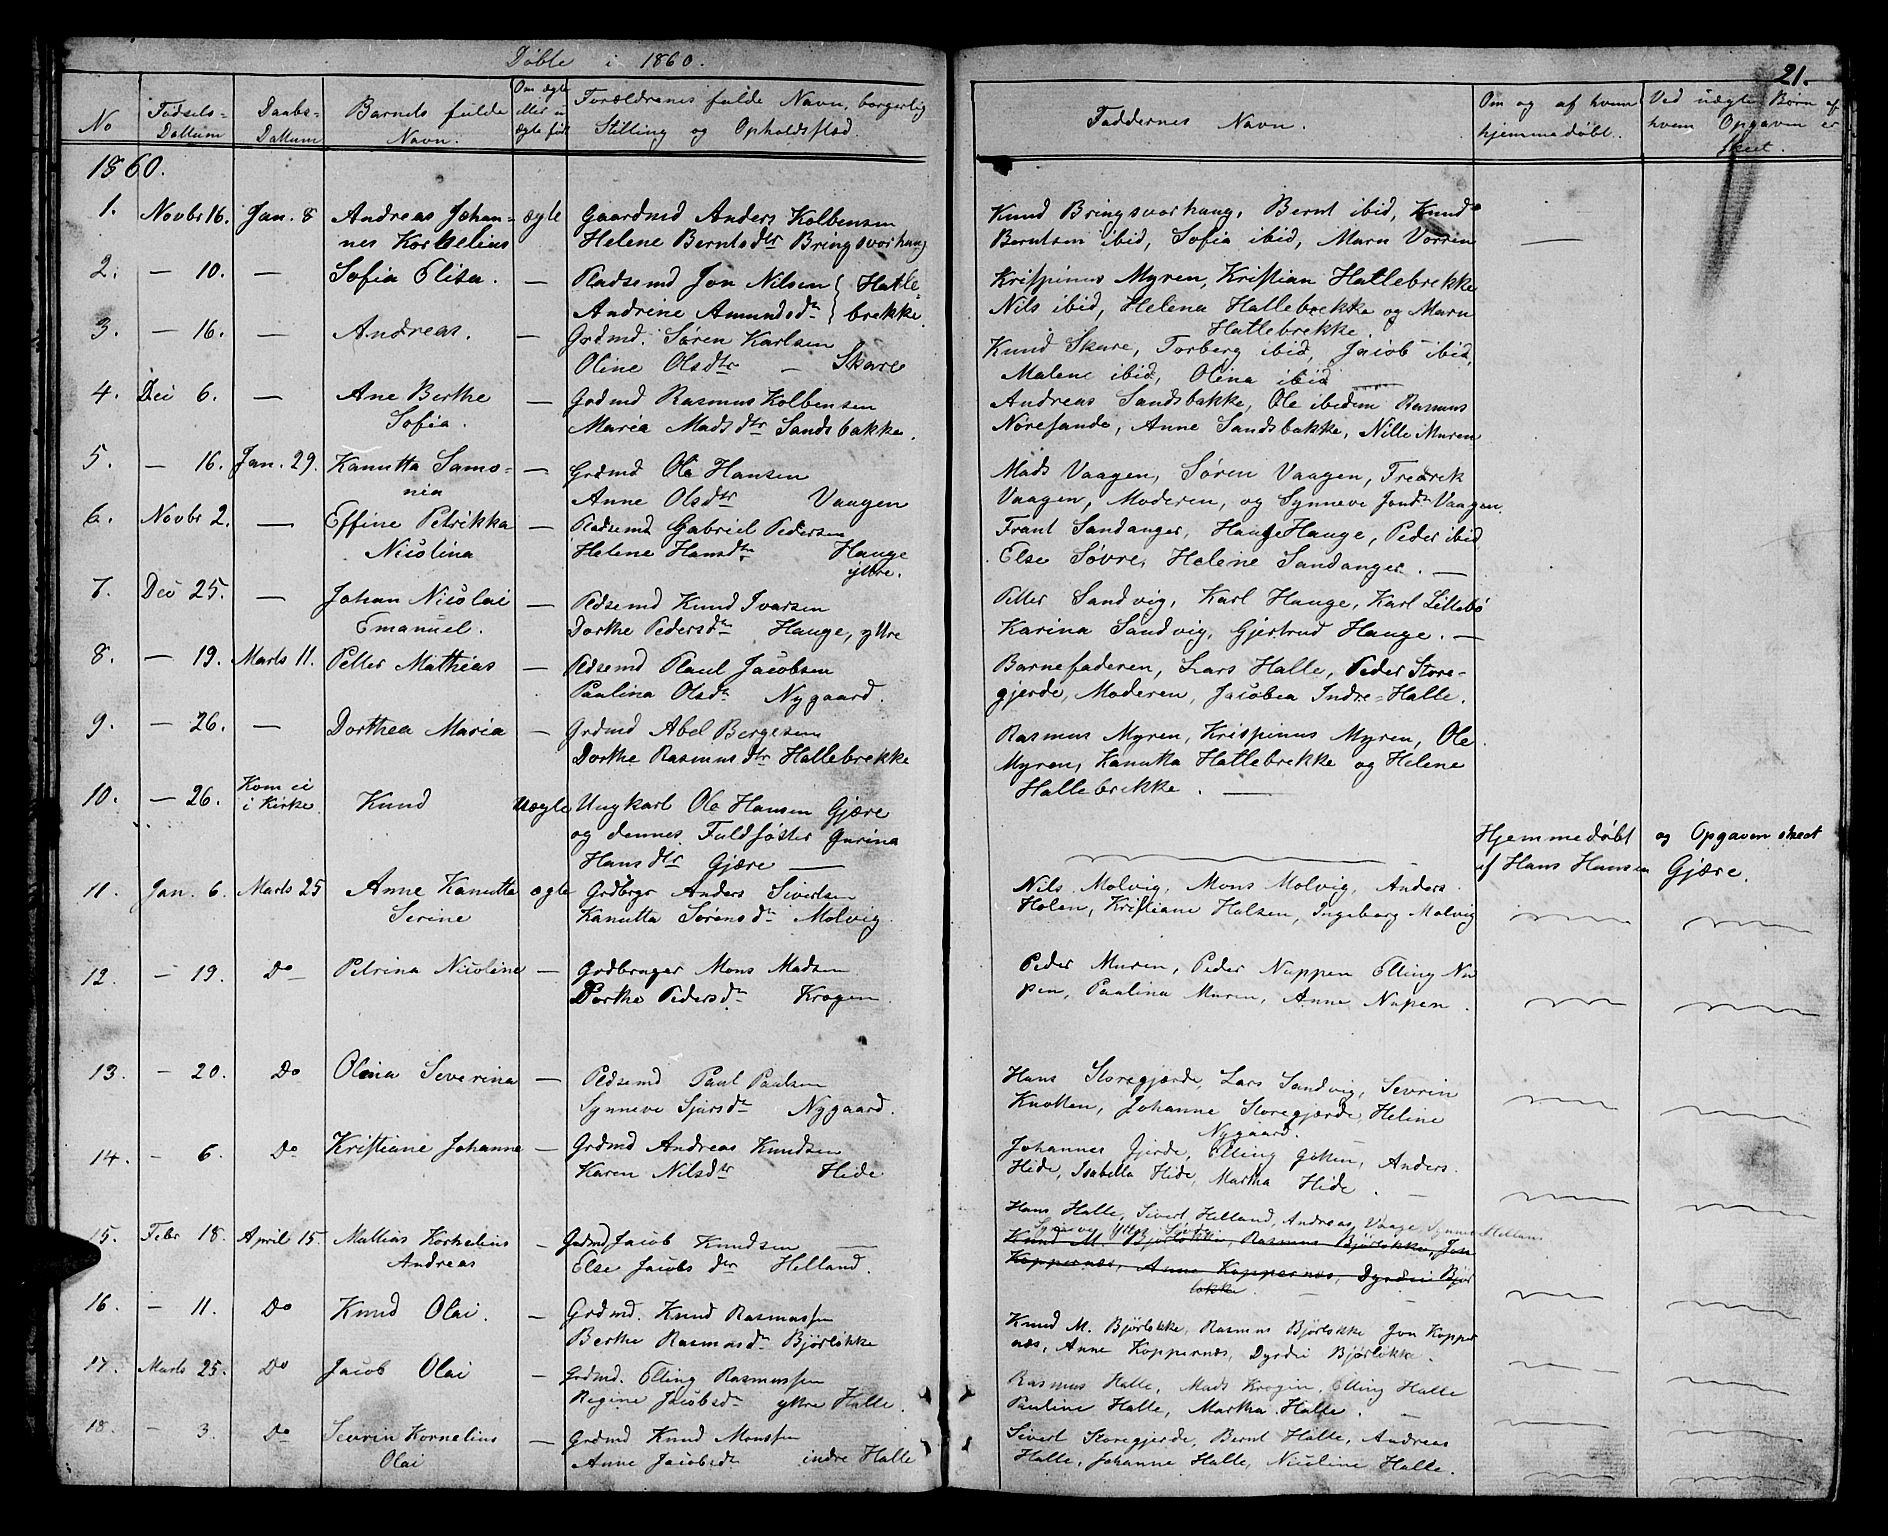 Døbte i 1860.
21.
No
Fødsels-
Dattum
Daabs-
Dattum
Barnets fulde
Navn.
Om ægte
eller u
ægte født
Forældrenes fulde Navn, borgerlig
Stilling og Opholdsstæd.
Faddernes Navn.
Om og af hvem
hjemmedøbt.
Ved uægte Børn af
hvem Opgaven er
skeet.
1860.
1. Novbr 16. Jan. 8 Andreas Johan- ægte Gaardmd Anders Kolbensen
nes Kornelius Helene Berntsdtr Bringsvorhaug
Knud Bringsvorhaug, Bernt ibid, Knud
Berntsen ibid, Sofia ibid, Maru Vorren —
2. — 10. — Sofia Elisa. — Pladsemd Jon Nilsen Hatle-
Andrine Amundsdtr brekke.
Krispinus Myren, Kristian Hatlebrekke
Nils ibid, Helena Hallebrekke og Maru
Hatlebrekke.
3. — 16. — Andreas. — Grdmd. Søren Karlsen
Oline Olsdtr — Skare
Knud Skare, Torberg ibid, Jacob ibid,
Malene ibid, Olina ibid
4. Dec 6. — Ane Berthe — Grdmd Rasmus Kolbensen
Sofia. Maria Madsdtr Sandsbakke.
Andreas Sandsbakke, Ole ibidem Rasmus
Nøresande, Anne Sandsbakke, Nille Muren
5. — 16. Jan. 29. Kanutta Samo- — Grdmd Ole Hansen
nia Anne Olsdtr Vaagen
Mads Vaagen, Søren Vaagen, Fredrik
Vaagen, Moderen, og Synneve Jondtr Vaagen.
6. Novbr 2. — Effine Petrikka — Pladsemd Gabriel Pedersen
Nicolina Helene Hansdtr Hauge
ytre.
Frant Sandanger, Hauge Hauge, Peder ibid
Else Søvre, Helene Sandanger. —
7. Dec 25. — Johan Nicolai — Pldsemd Knud Ivarsen
Emanuel. Dorthe Pedersdtr Hauge, ytre
Petter Sandvig, Karl Hauge, Karl Littebø
Karina Sandvig, Gjertrud Hauge. —
8. — 19. Marts 11. Petter Mathias — Pldsemd Paul Jacobsen
Paulina Olsdtr Nygaard.
Barnefaderen, Lars Halle, Peder Store-
gjerde, Moderen, Jacobea Indre-Halle.
9. — 26. — Dorthea Maria — Grdmd Abel Bergesen
Dorthe Rasmusdtr Hallebrekke
Rasmus Myren, Krispinus Myren, Ole
Myren, Kanutta Hatlebrekke og Helene
Hallebrekke. —
10. — 26. Kom ei
i Kirke Knud Uægte Ungkarl Ole Hansen Gjære
og dennes Fuldsøster Gurina
Hansdtr Gjære —
Hjemmedøbt og Opgaven skeet
af Hans Hansen Gjære.
11. Jan. 6. Marts 25 Anne Kanutta ægte Grdbrgr Anders Sivertsen
Serine Kanutta Sørensdtr Molvig.
Nils Molvig, Mons Molvig, Anders
Holen, Kristiane Holsen, Ingeborg Molvig
12. — 19. Do Petrina Nicoline — Grdbruger Mons Madsen
Dorthe Pedersdtr Krogen.
Peder Muren, Peder Nuppen Elling Nu
pen, Paulina Muren, Anne Nupen.
13. — 20. Do Olina Severina — Pldsemd Paul Paulsen
Synneve Sjursdtr Nygaard.
Hans Storegjærde, Lars Sandvig, Sevrin
Knotten, Johanne Storegjærde, Heline
Nygaard.
14. — 6. Do Kristiane Johanne — Grdmd Andreas Knudsen
Karen Nilsdtr Hide
Johannes Gjerde, Elling Gjerde, Anders
Hide, Isabella Hide, Martha Hide.
15. Febr 18. April 15. Mathias Kornelius — Grdmd Jacob Knudsen —
Andreas Else Jacobsdtr Helland.
Hans Halle, Sivert Helland, Andreas Vaage, Synneve Helland
Knud M. Bjørløkke, Rasmus Bjørløkke, Jon
Koppernæs, Anne Koppernæs, Dyrdei Bjør
løkke.
16. — 11. Do Knud Olai. — Grdmd. Knud Rasmussen
Berthe Rasmusdtr Bjørløkke
Knud M. Bjørløkke, Rasmus Bjørløkke Jon Kopper
næs, Anne Koppernæs, Dyrdei Bjørløkke.
17. Marts 25. Do Jacob Olai — Grdmd. Elling Rasmussen
Regine Jacobsdtr ytre Halle.
Rasmus Halle, Mads Krogen, Elling Halle
Pauline Halle, Martha Halle.
18. — 3. Do Sevrin Kornelius — Grdmd Knud Monssen
Olai Anne Jacobsdtr indre Halle
Sivert Storegjerde, Bernt Halle, Andreas
Halle, Johanne Halle, Nicoline Halle.